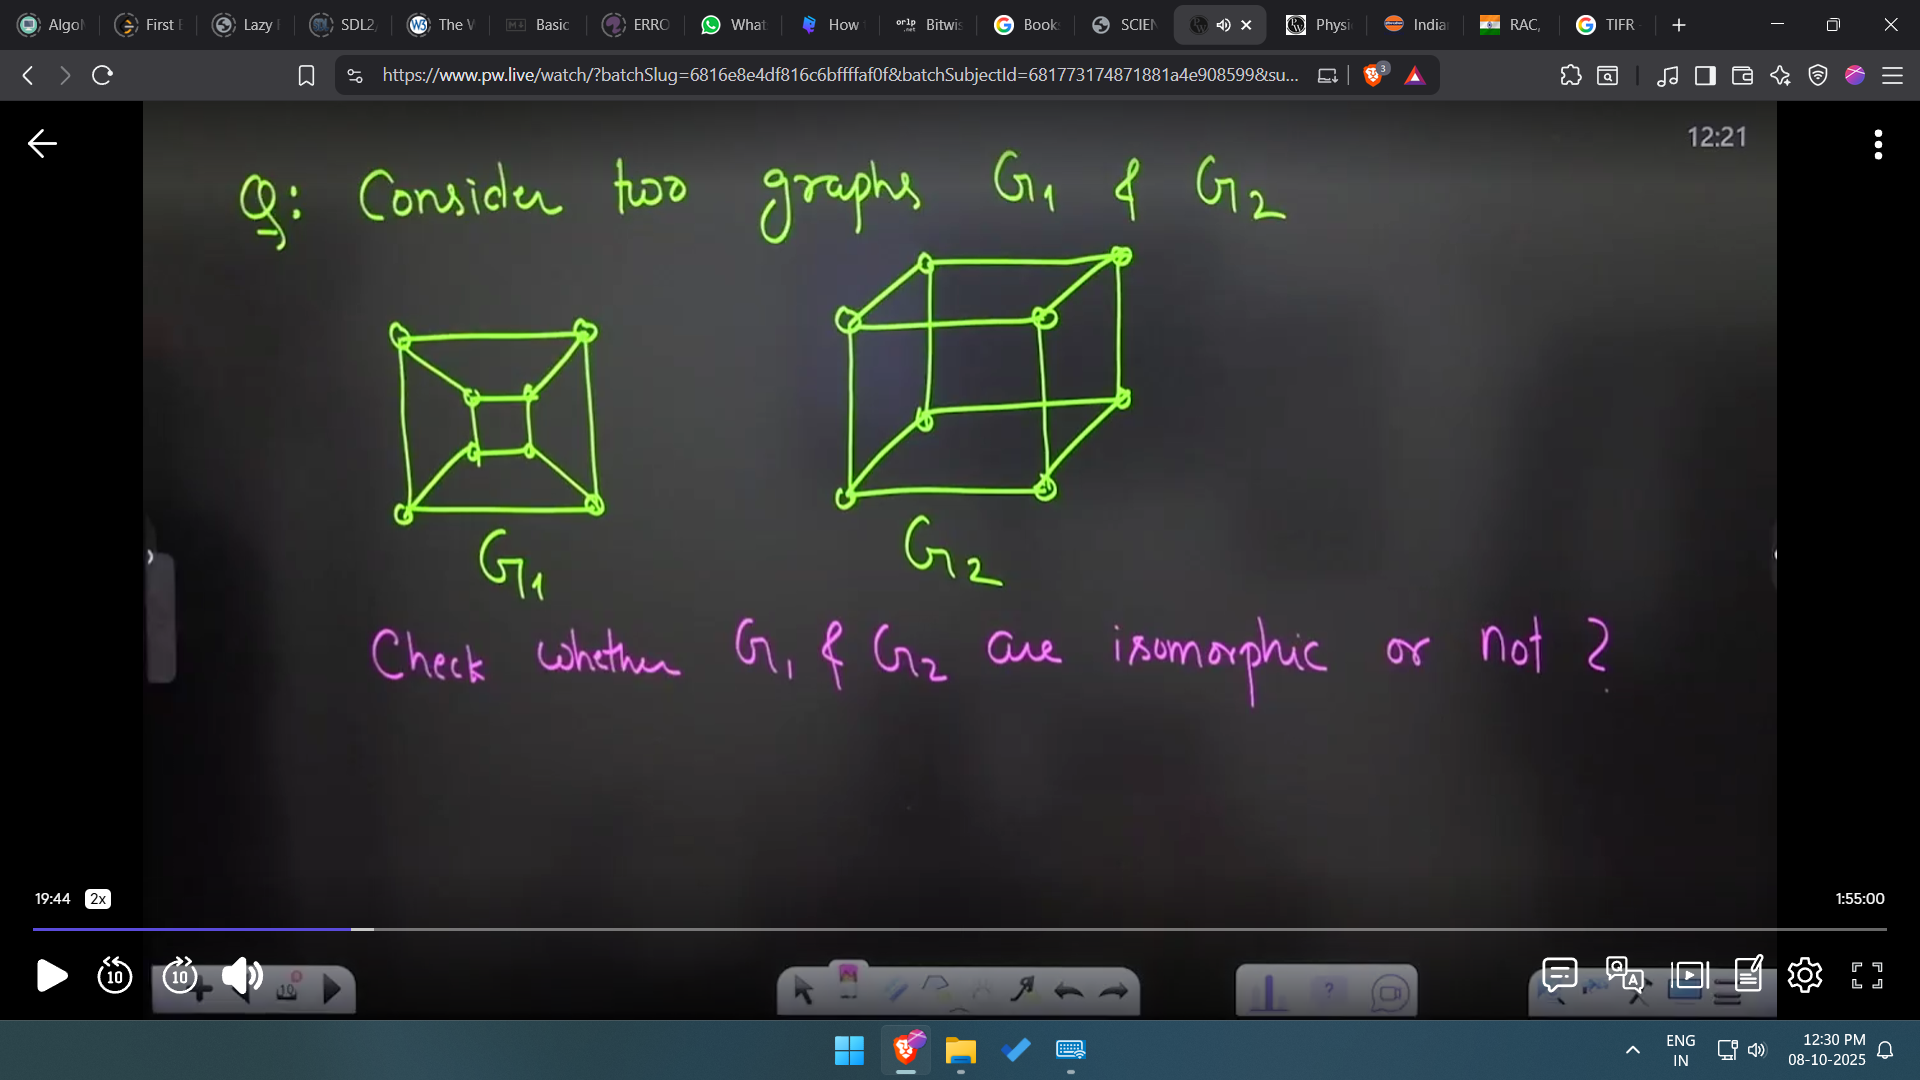 Algo First E Lazy SDL2, The W Basic ERRO What How Bitwis Book SCIEN Physi India RAC, TIFR
https://www.pw.live/watch/?batchSlug=6816e8e4df816c6bffffaf0f&batchSubjectId=681773174871881a4e908599&su... 3
12:21
Q: Consider two graphs G1 & G2
G1
G2
Check whether G1 & G2 are isomorphic or not ?
19:44 2x 1:55:00
10 10
ENG 12:30 PM
IN 08-10-2025